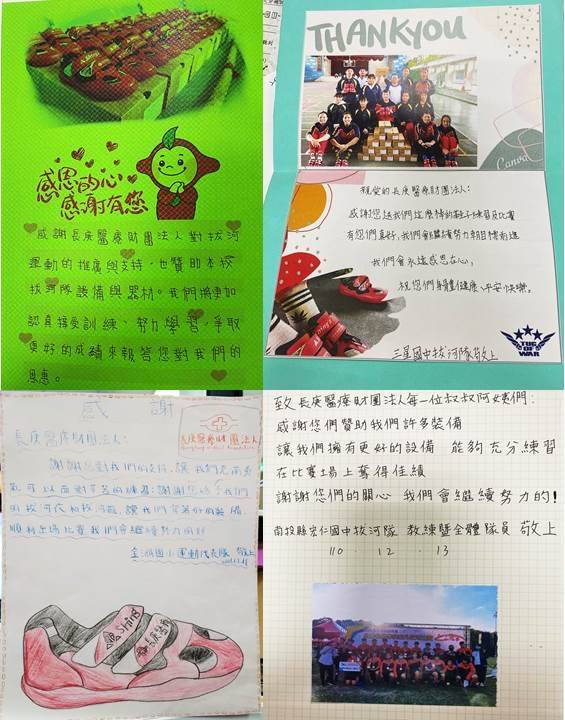 感恩的心
感謝有您
感謝長庚醫療財團法人對拔河
運動的推廣與支持,也贊助本校
拔河隊設備與器材。我們將更加
認真接受訓練、努力學習,爭取
更好的成績來報答您對我們的
恩惠。
THANKYOU
Canva
親愛的長庚醫療財團法人:
感謝您送我們這麼棒的鞋子練習及比賽
有您們真好,我們會繼續努力朝目標前進
我們會永遠感恩在心,
祝您們身體健康、平安快樂。
三星國中拔河隊敬上
TUG
OF
WAR
感 謝
長庚醫療財團法人
長庚醫療財團法人:
謝謝您對我們的支持,讓我們
可以面對辛苦的練習;謝謝您給予我們
的拔河衣和拔河鞋,讓我們穿著好的裝備
順利出場比賽,我們會繼續努力的!
金湖國小運動代表隊 敬上
Shing
長庚
致 長庚醫療財團法人每一位叔叔阿姨們:
感謝您們贊助我們許多裝備
讓我們擁有更好的設備 能夠充分練習
在比賽場上奪得佳績
謝謝您們的關心 我們會繼續努力的!
南投縣宏仁國中拔河隊 教練暨全體隊員 敬上
110.12.13